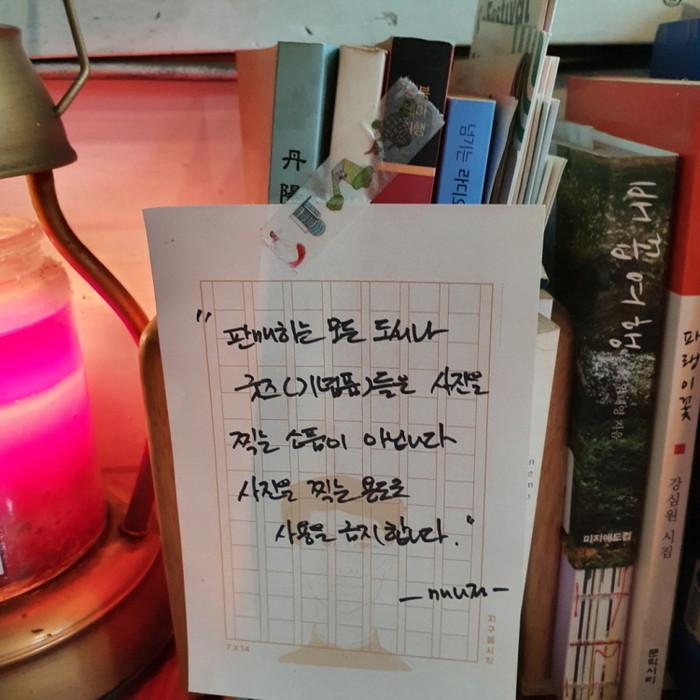 Festival
丹
"판매하는 모든 도서나
굿즈(기념품)들은 사진을
찍는 소품이 아닙니다
사진을 찍는 용도로
사용을 금지합니다."
— 매니저 —
7 X 14
지구불시착
미지애드컴
파랭이꽃
강심원 시집